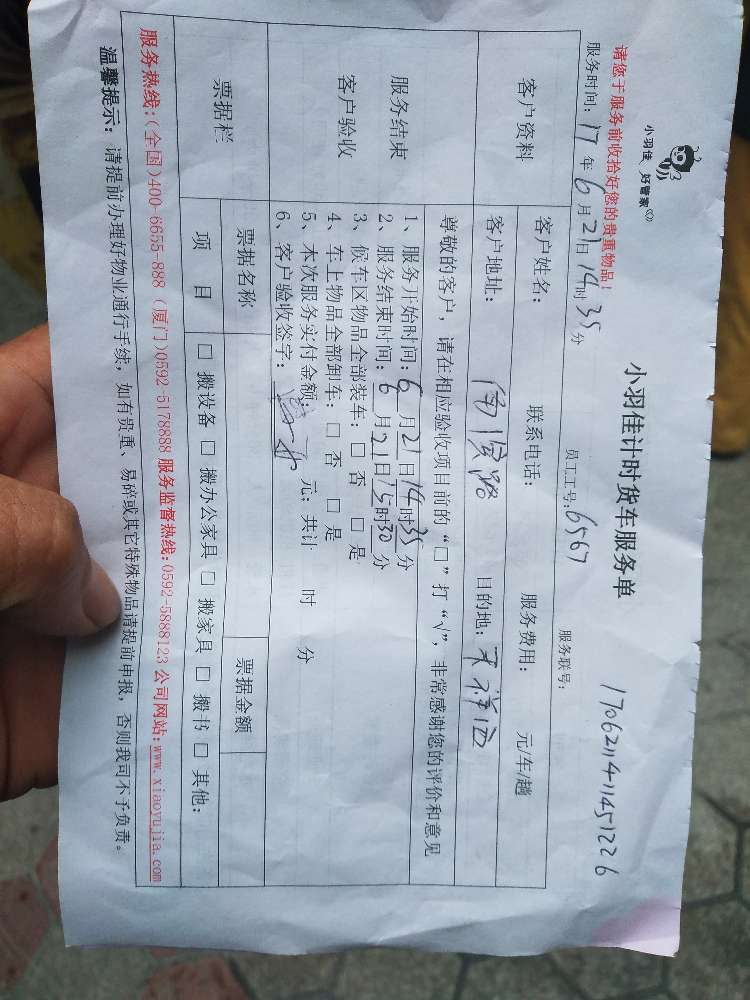 小羽佳 好管家
小羽佳计时货车服务单
170621141145122 6
请您于服务前收拾好您的贵重物品!
员工工号:6567
服务联号:
服务时间:17年6月21日14时35分
客户资料
客户姓名:
联系电话:
服务费用: 元/车/趟
客户地址:
目的地:天祥西
服务结束
客户验收
尊敬的客户,请在相应验收项目前的“□”打“√”,非常感谢您的评价和意见
1、服务开始时间:6月21日14时35分
2、服务结束时间:6月21日15时30分
3、候车区物品全部装车:□ 否 □ 是
4、车上物品全部卸车:□ 否 □ 是
5、本次服务实付金额: 元;共计 时 分
6、客户验收签字:
票据栏
票据名称
票据金额
项 目
□ 搬设备 □ 搬办公家具 □ 搬家具 □ 搬书 □ 其他:
服务热线:(全国)400-6655-888 (厦门)0592-5178888 服务监督热线:0592-5888123 公司网站:www.xiaoyujia.com
温馨提示:请提前办理好物业通行手续,如有贵重、易碎或其它特殊物品请提前申报,否则我司不予负责。